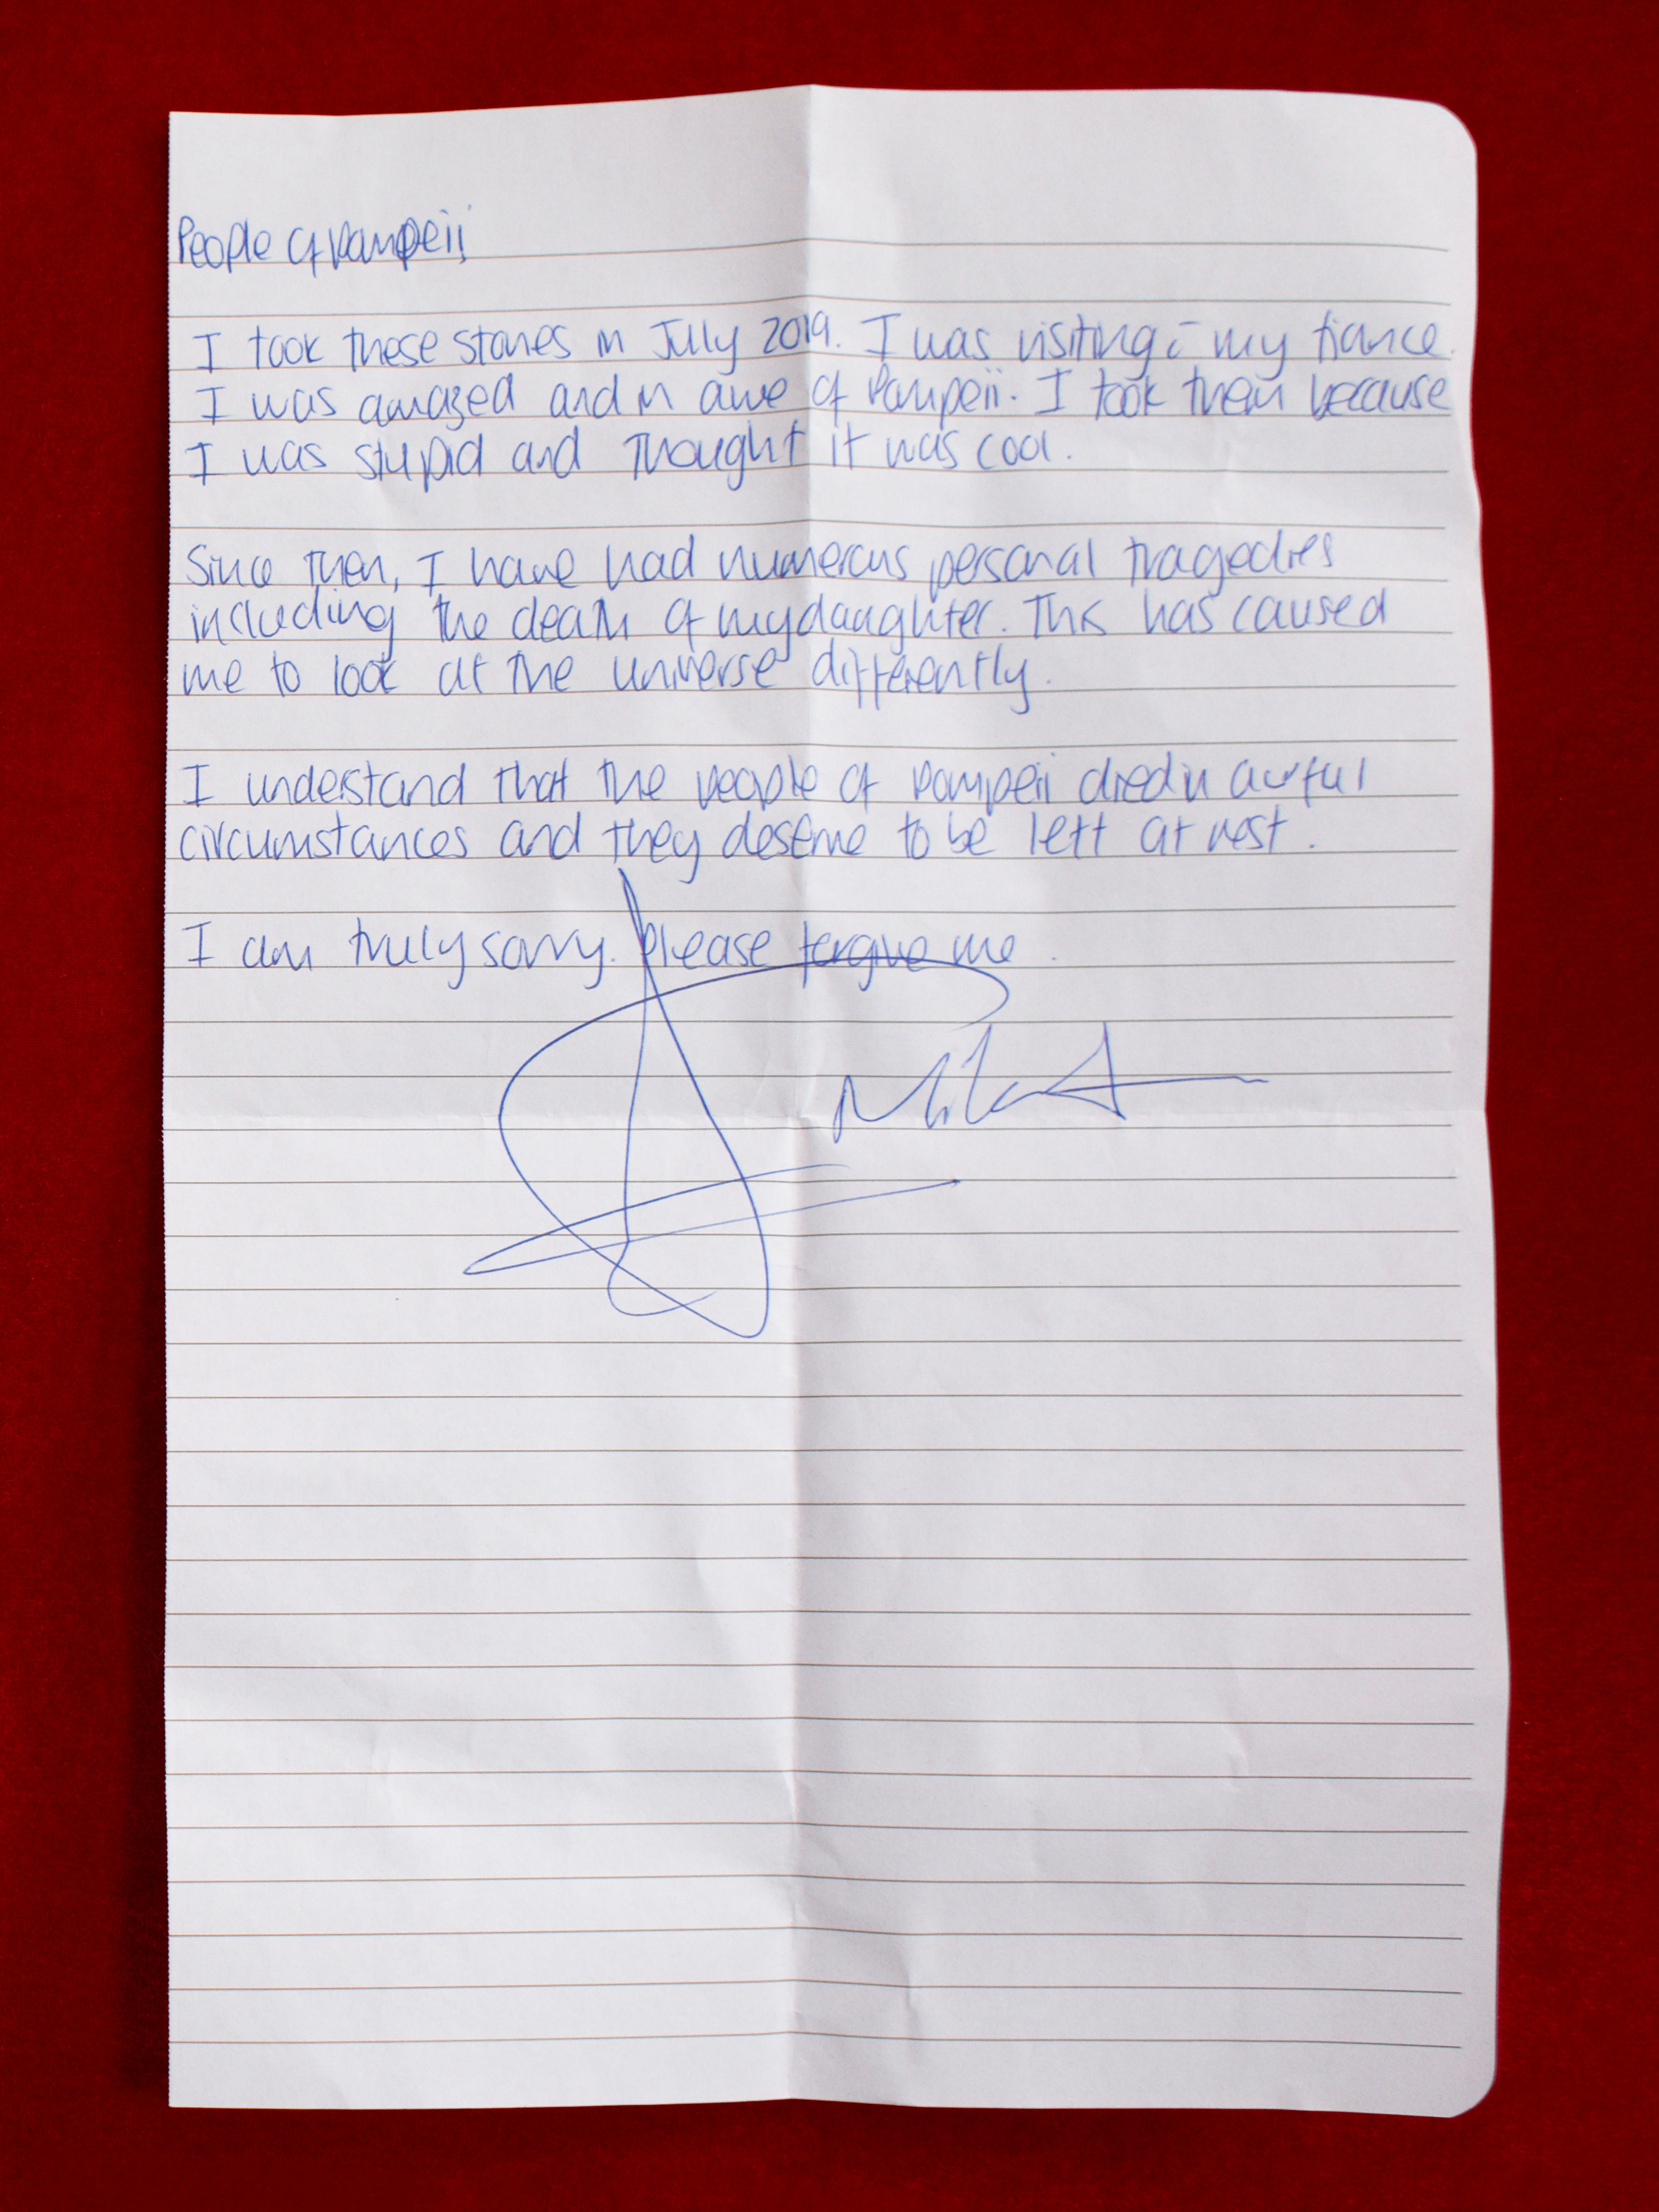 People of Pompeii,
I took these stones in July 2019. I was visiting c̄ my fiance.
I was amazed and in awe of Pompeii. I took them because
I was stupid and thought it was cool.
Since then, I have had numerous personal tragedies
including the death of my daughter. This has caused
me to look at the universe differently.
I understand that the people of Pompeii died in awful
circumstances and they deserve to be left at rest.
I am truly sorry. Please forgive me.